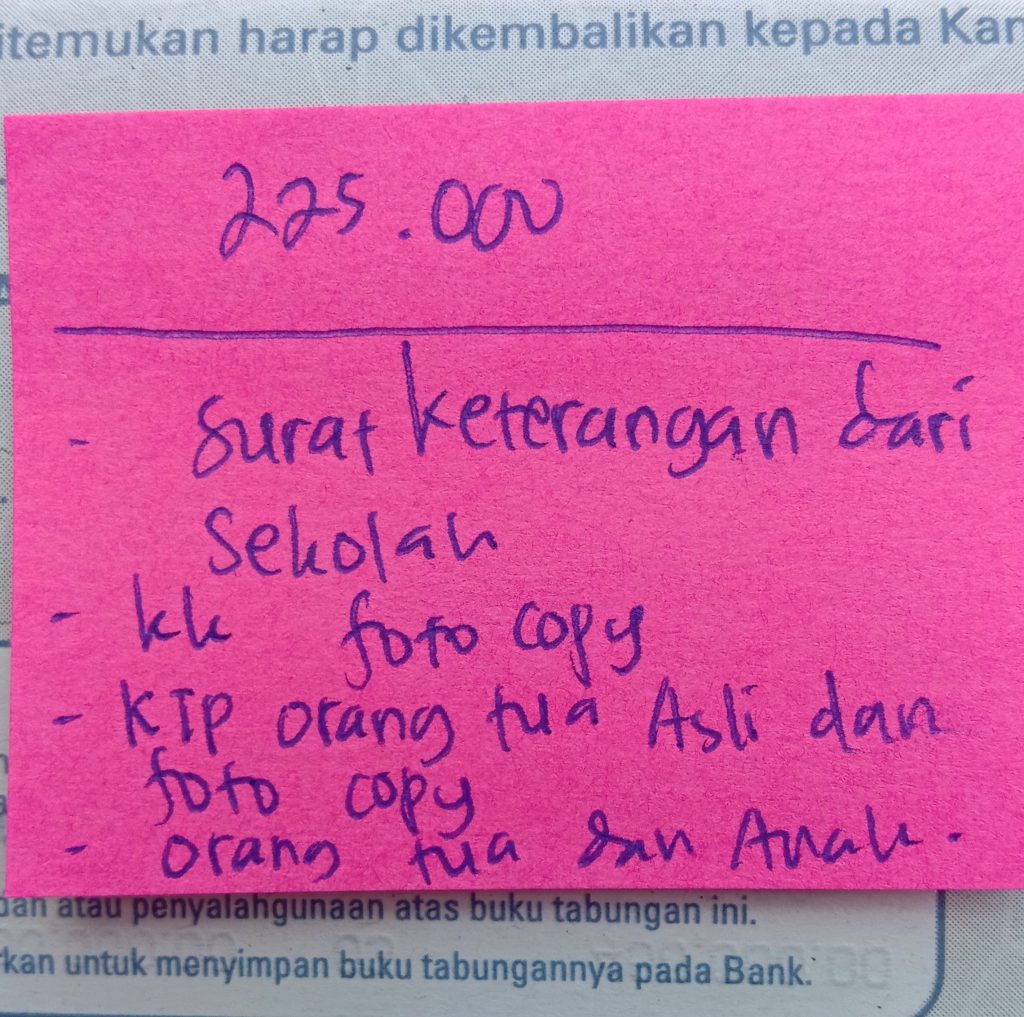 itemukan harap dikembalikan kepada Kan
225.000
- Surat keterangan dari
Sekolah
- kk foto copy
- KTP orang tua Asli dan
foto copy
- orang tua dan Anak.
dan atau penyalahgunaan atas buku tabungan ini.
rkan untuk menyimpan buku tabungannya pada Bank.